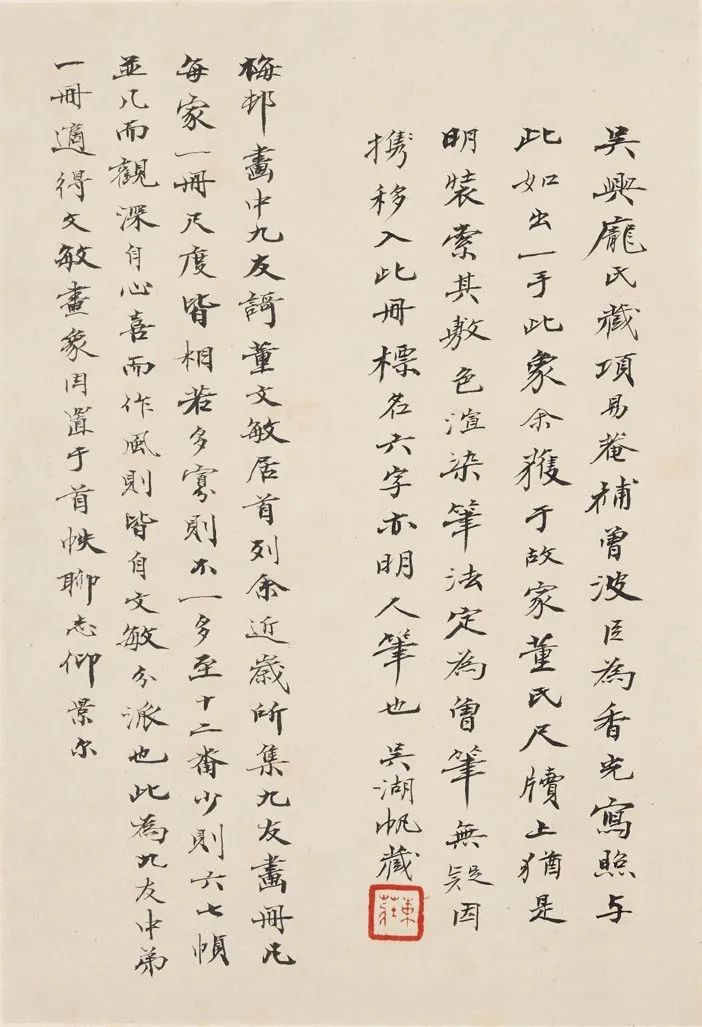 吳興龐氏藏項易菴補曾波臣為香光寫照与
此如出一手此象余獲于故家董氏尺牘上猶是
明裝索其敷色渲染筆法定為曾筆無疑因
攜移入此冊標名六字亦明人筆也 吳湖帆藏
東莊
梅邨畫中九友謌董文敏居首列余近歲所集九友畫冊凡
每家一冊尺度皆相若多寡則不一多至十二番少則六七幀
並几而觀深自心喜而作風則皆自文敏分派也此為九友中弟
一冊適得文敏畫象因置于首帙聊志仰景尔